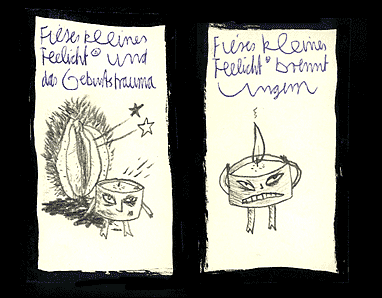 Fieses kleines
Teelicht® und
das Geburtstrauma
Fieses kleines
Teelicht® brennt
ungern